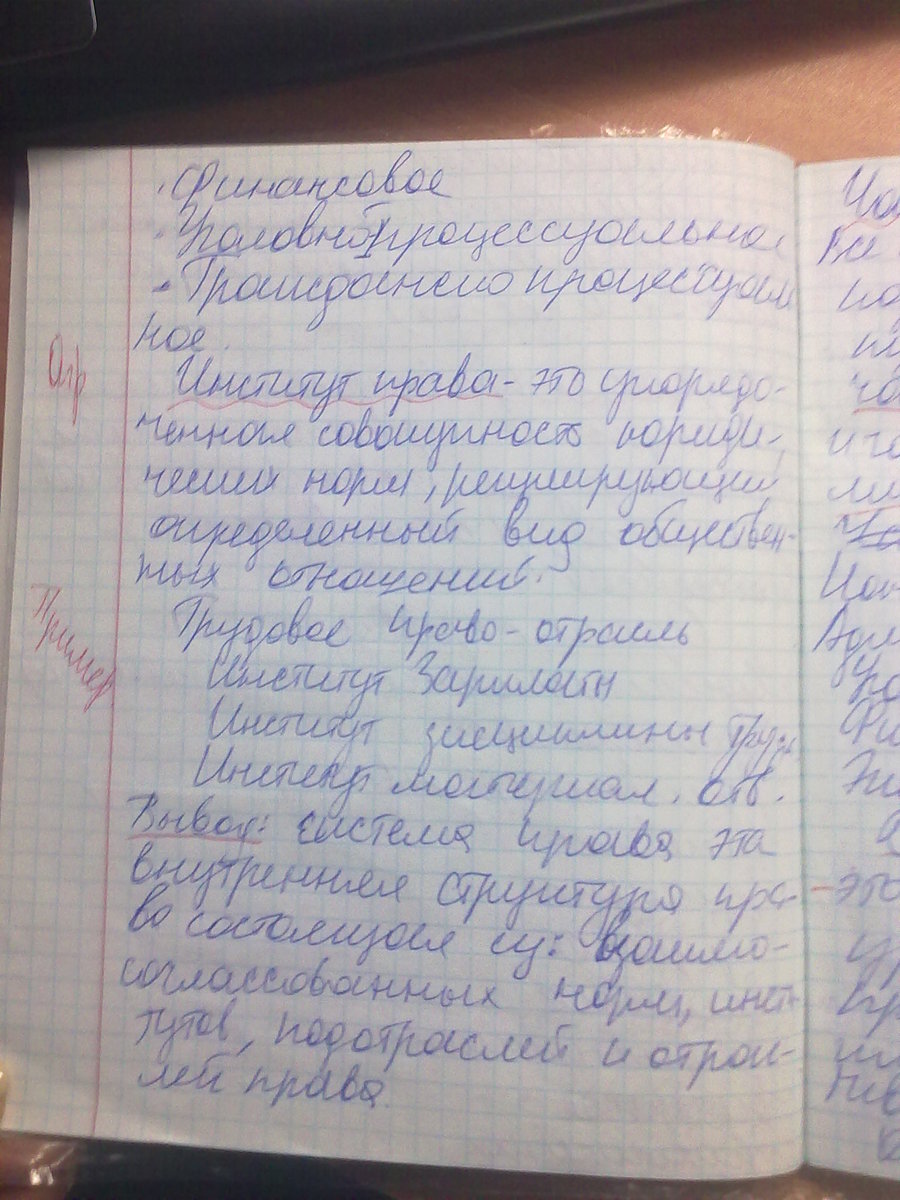 · Финансовое
· Уголовно процессуальное
- Гражданско процессуаль
ное
Опр
Институт права - это упорядо-
ченная совокупность юриди-
ческих норм, регулирующий
определенный вид обществен-
ных отношений.
Пример
Трудовое право - отрасль
Институт Зарплаты
Институт дисциплины труда
Институт материал. отв.
Вывод: система права эта
внутренняя структура пра-
во состоящая из: взаимо-
согласованных норм, инсти-
тутов, подотраслей и отрас-
лей права
Все
это